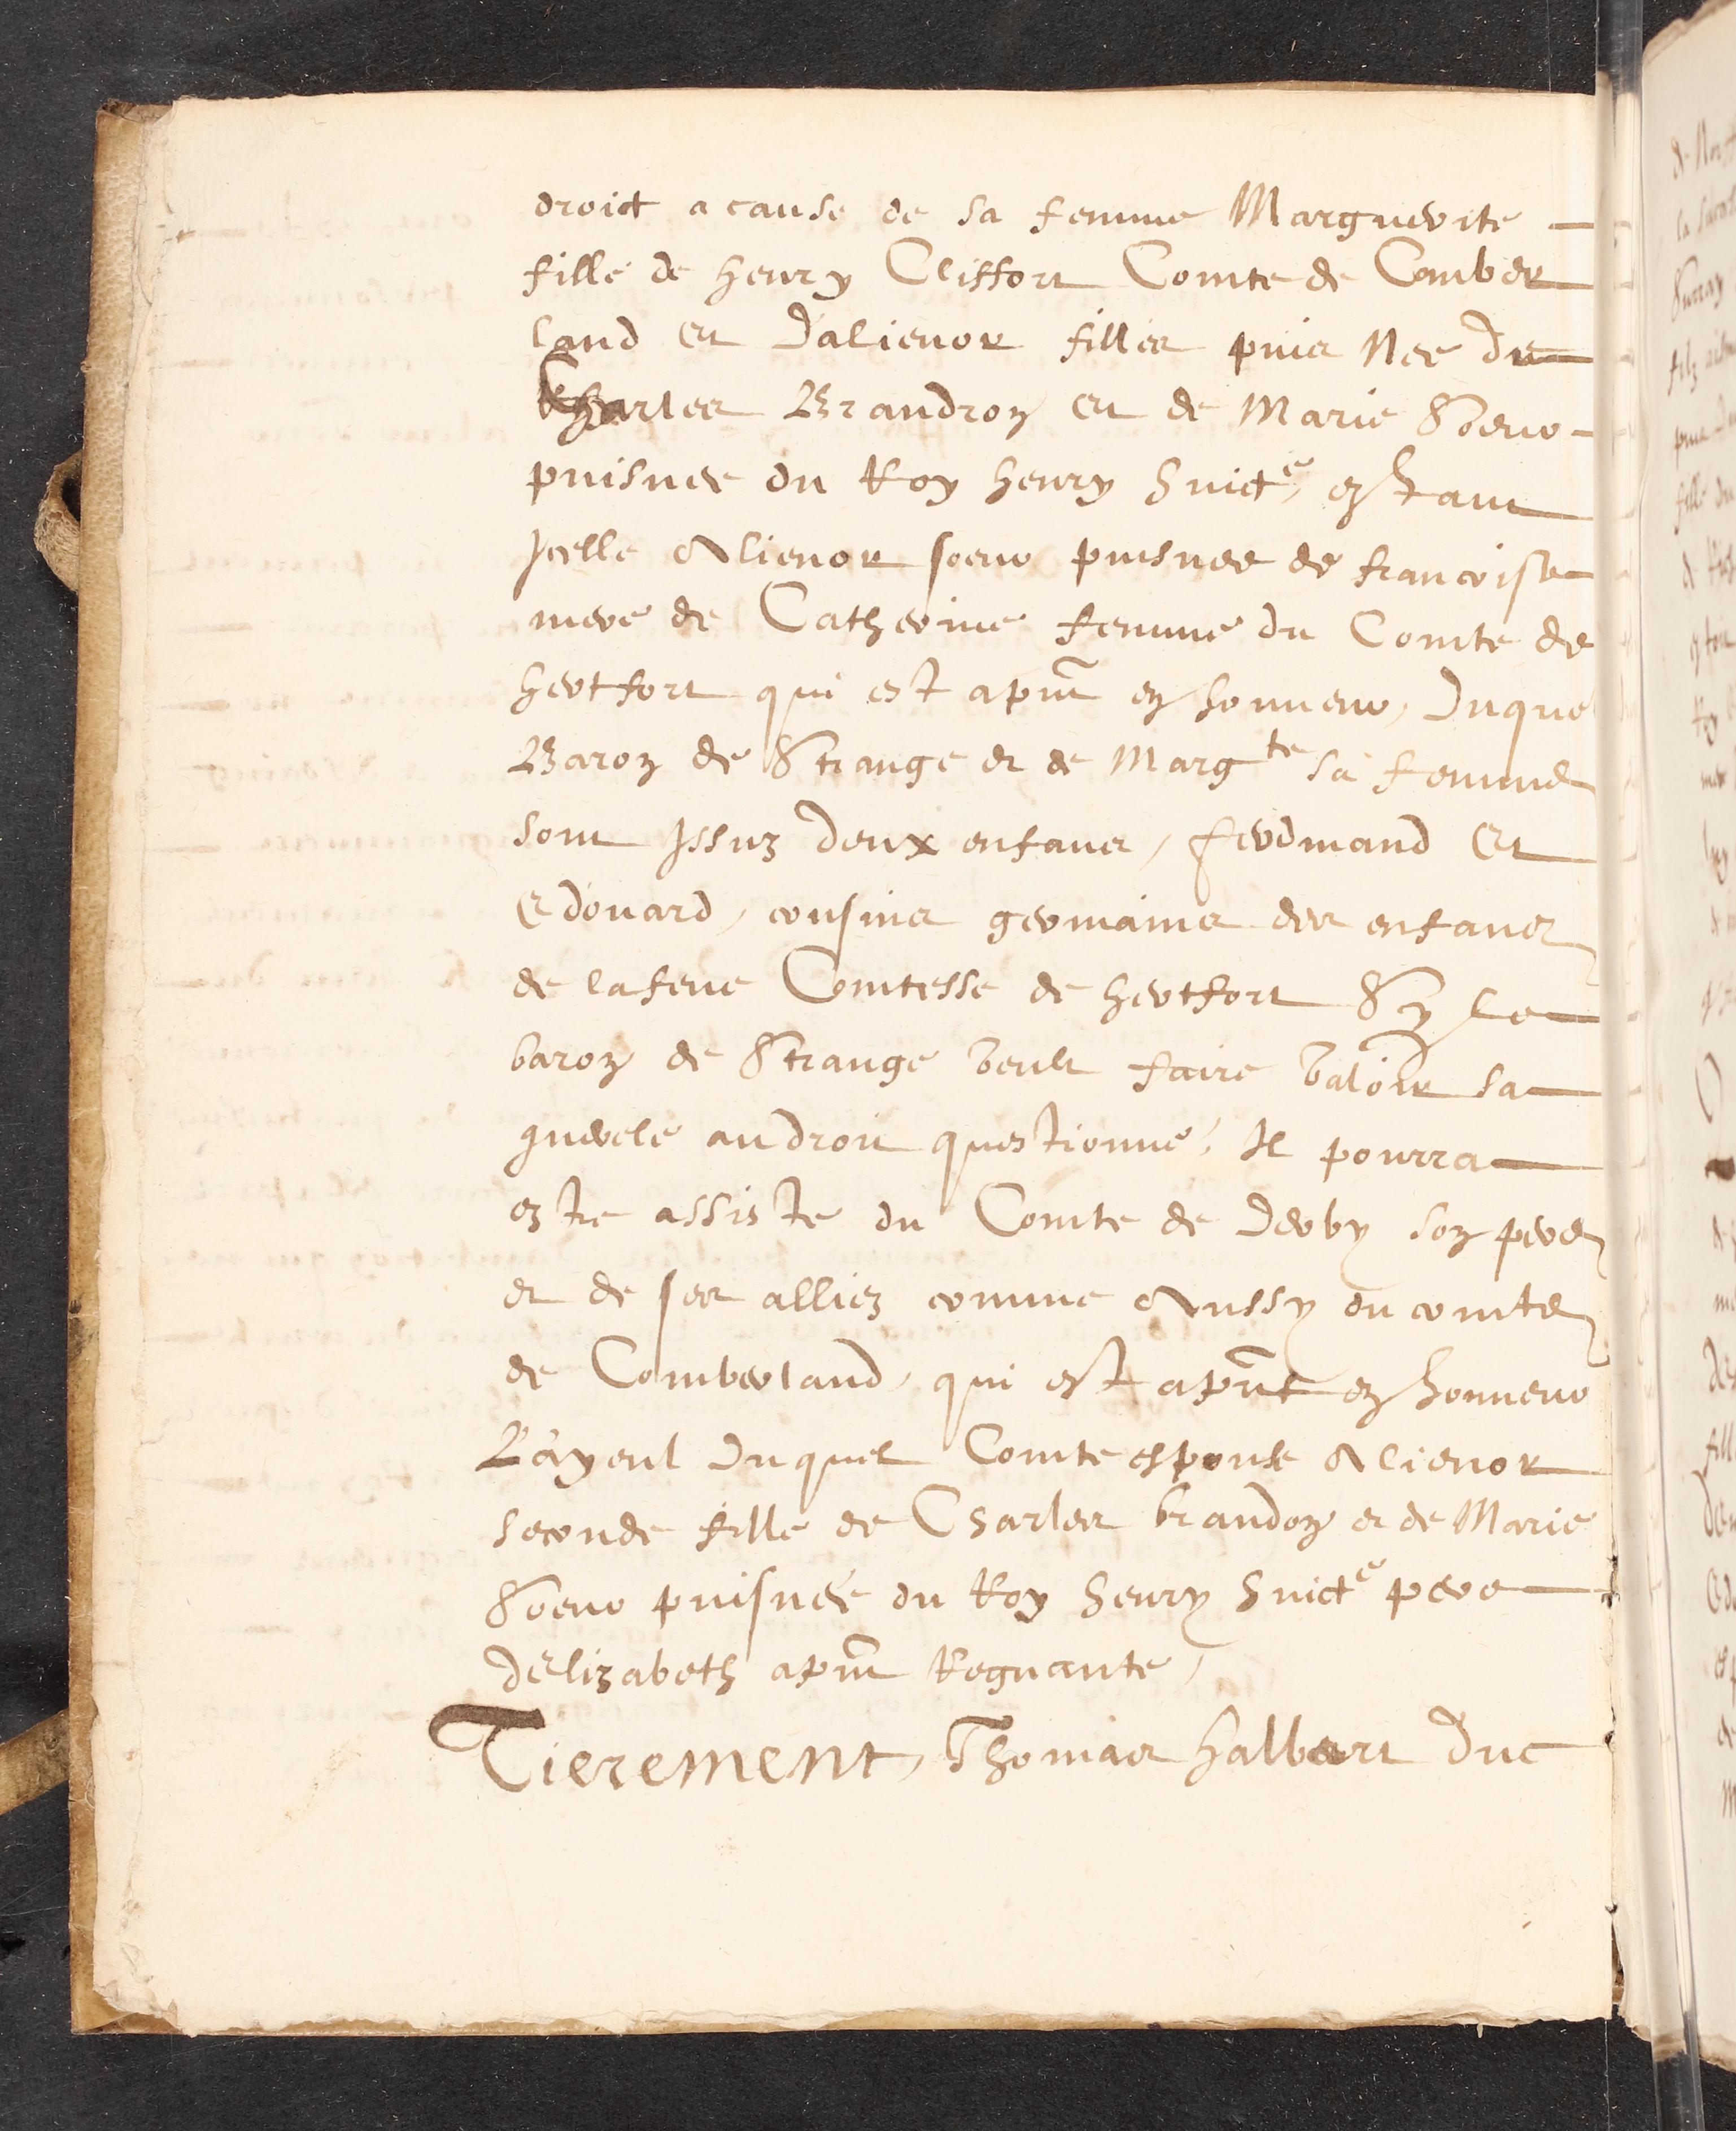 droict a cause de sa femme Marguerite
fille de henry Cliffort Comte de Comber
land et dalienor filles puis Nee de
Charles Brandron et de Marie Soeur
puisnee du Roy henry huicte, estant
Jcelle Alienor soeur puisnee de francoise
mere de Catherine femme du Comte de
hertfort qui est apnt en honneur, Duquel
Baron de Strange et de Margte sa femme
sont Jssuz deux enfans, ferdinand Et
Edouard, cousins germains des enfans
de lafeue Comtesse de hertfort Sy le
baron de Strange veult faire valoir sa
querele audroit questionne, Il pourra
estre assiste du Comte de Derby son pere
et de ses alliez comme Aussy du comte
de Comberland, qui est apnt en honneur
L'ayeul duquel Comte espouse Alienor
seconde fille de Charles brandon et de Marie
Soeur puisnée du Roy henry huicte pere
dElizabeth apnt Regnante,
Tierement, Thomas halbert Duc